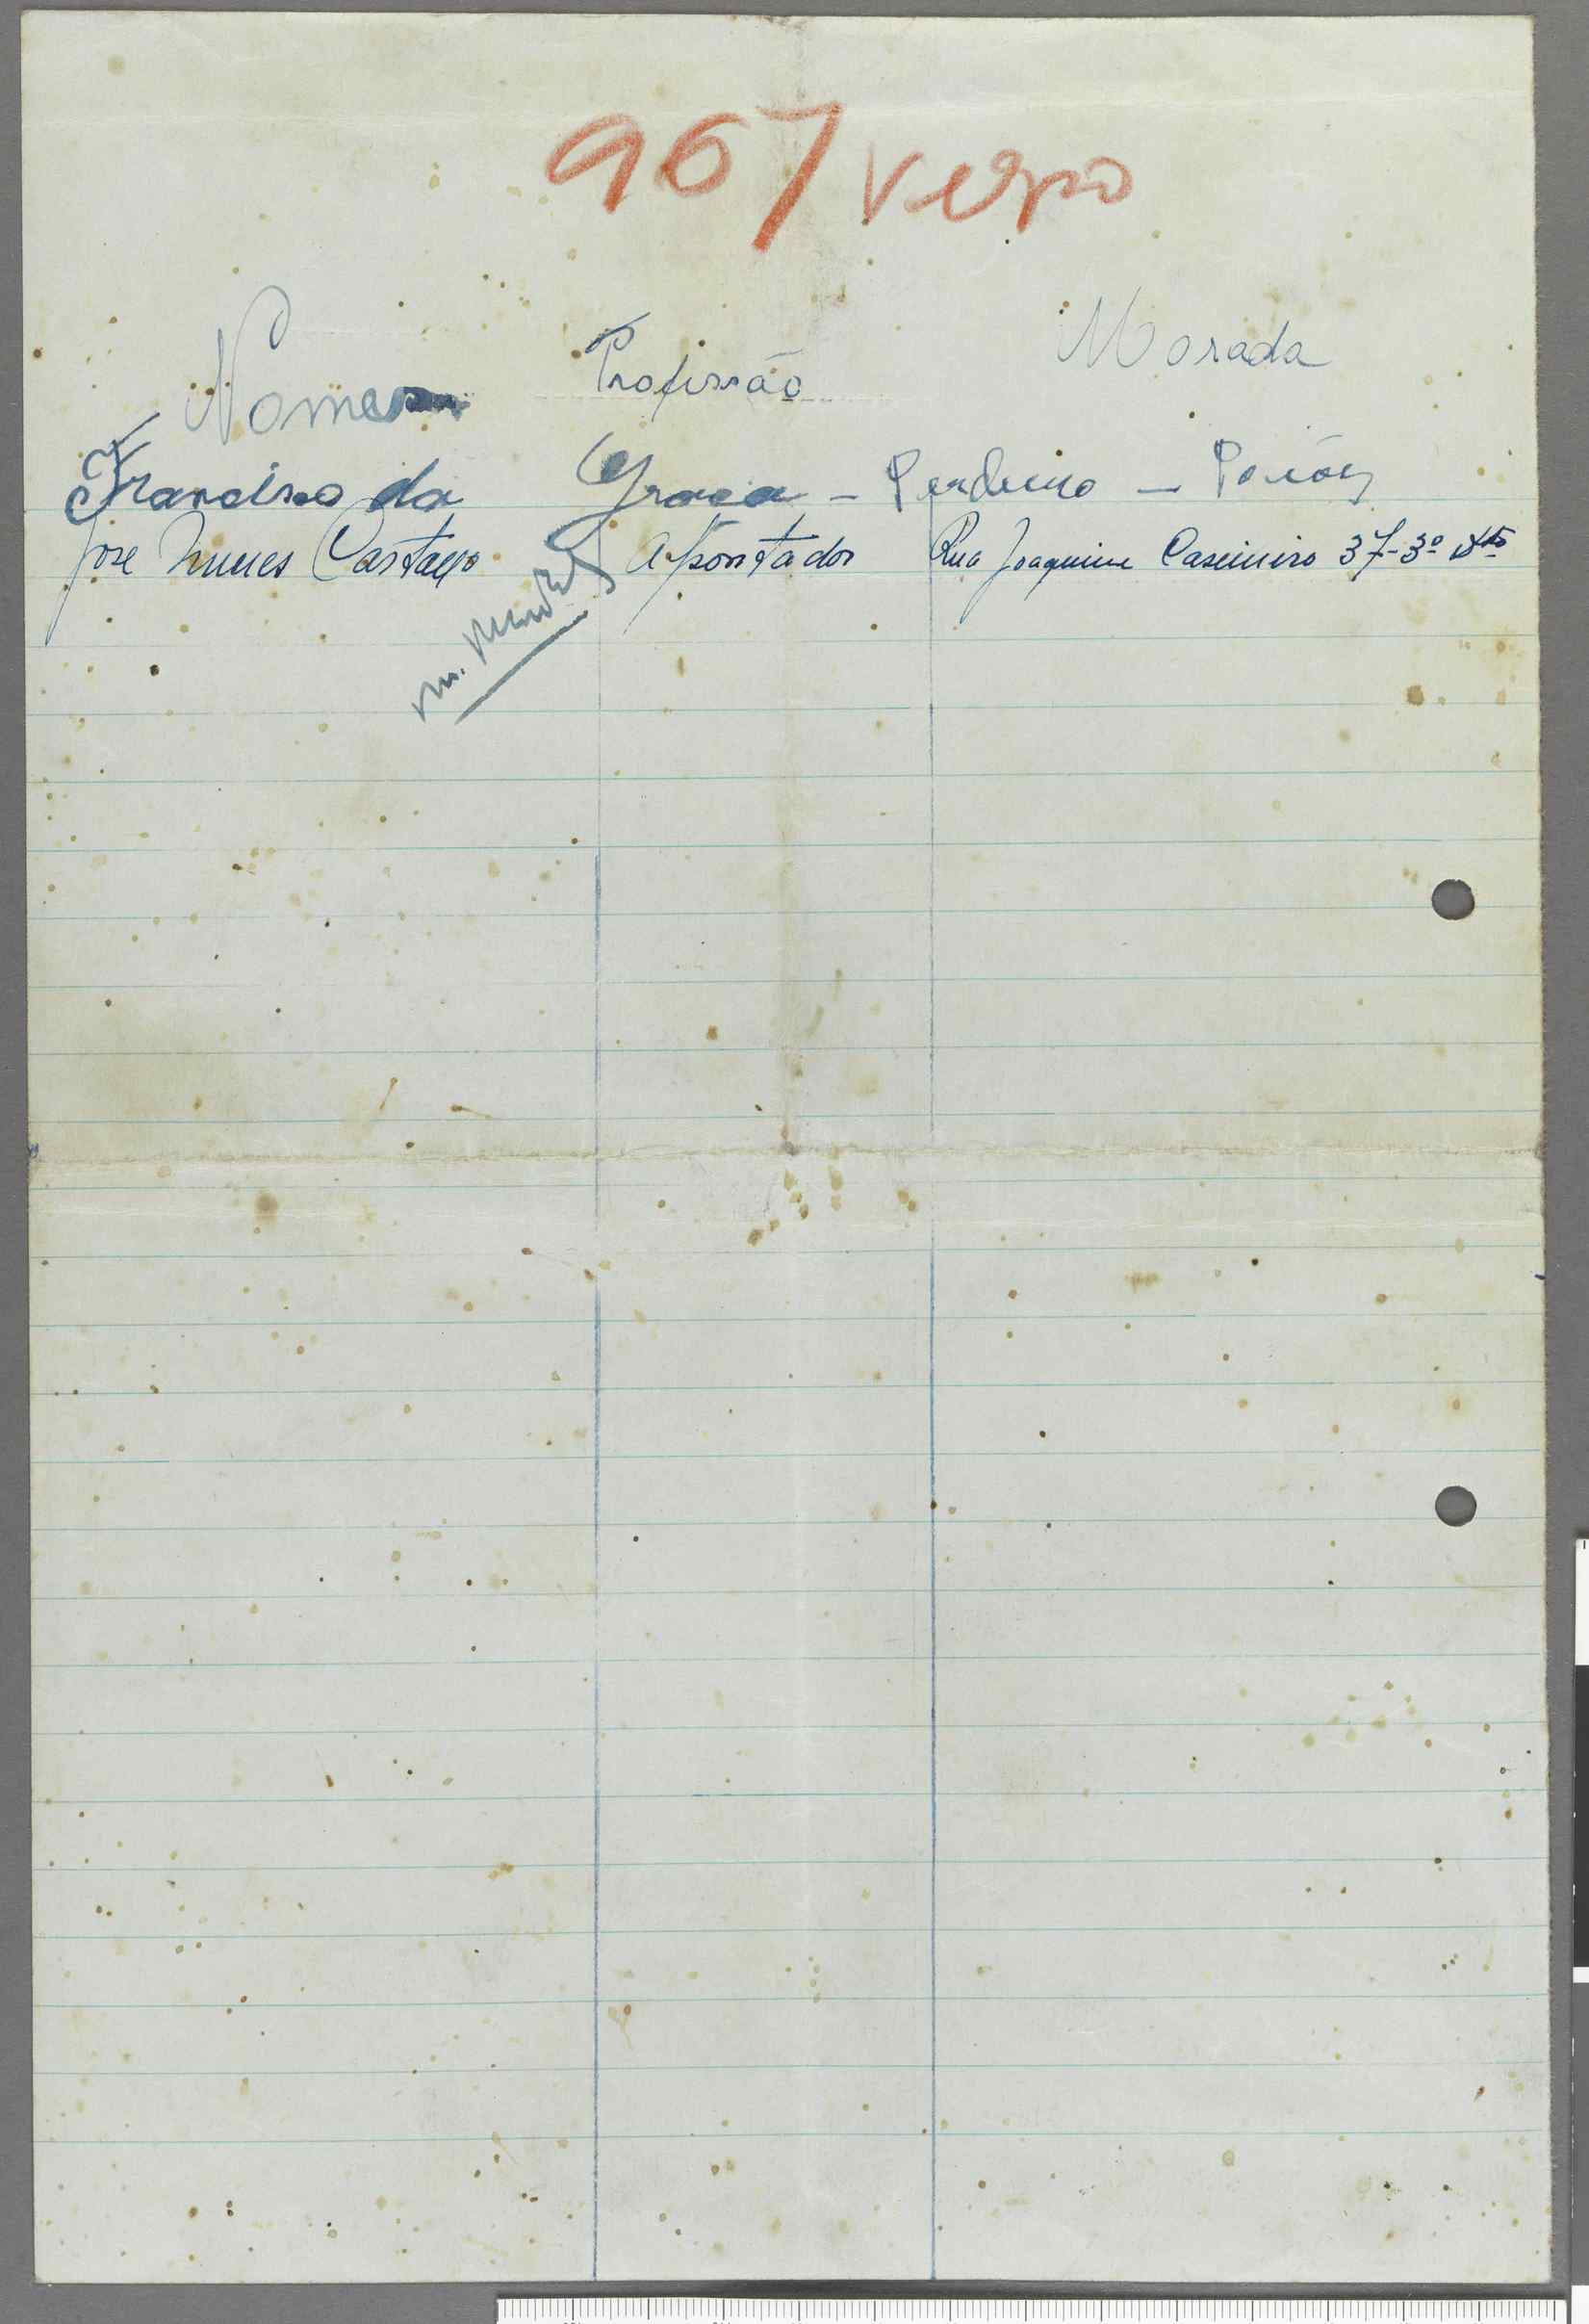 967 verso
Nomes Profissão Morada
Francisco da Graça - Pedreiro -
José Nunes Apontador Rua Joaquim Casimiro 37-3º dto